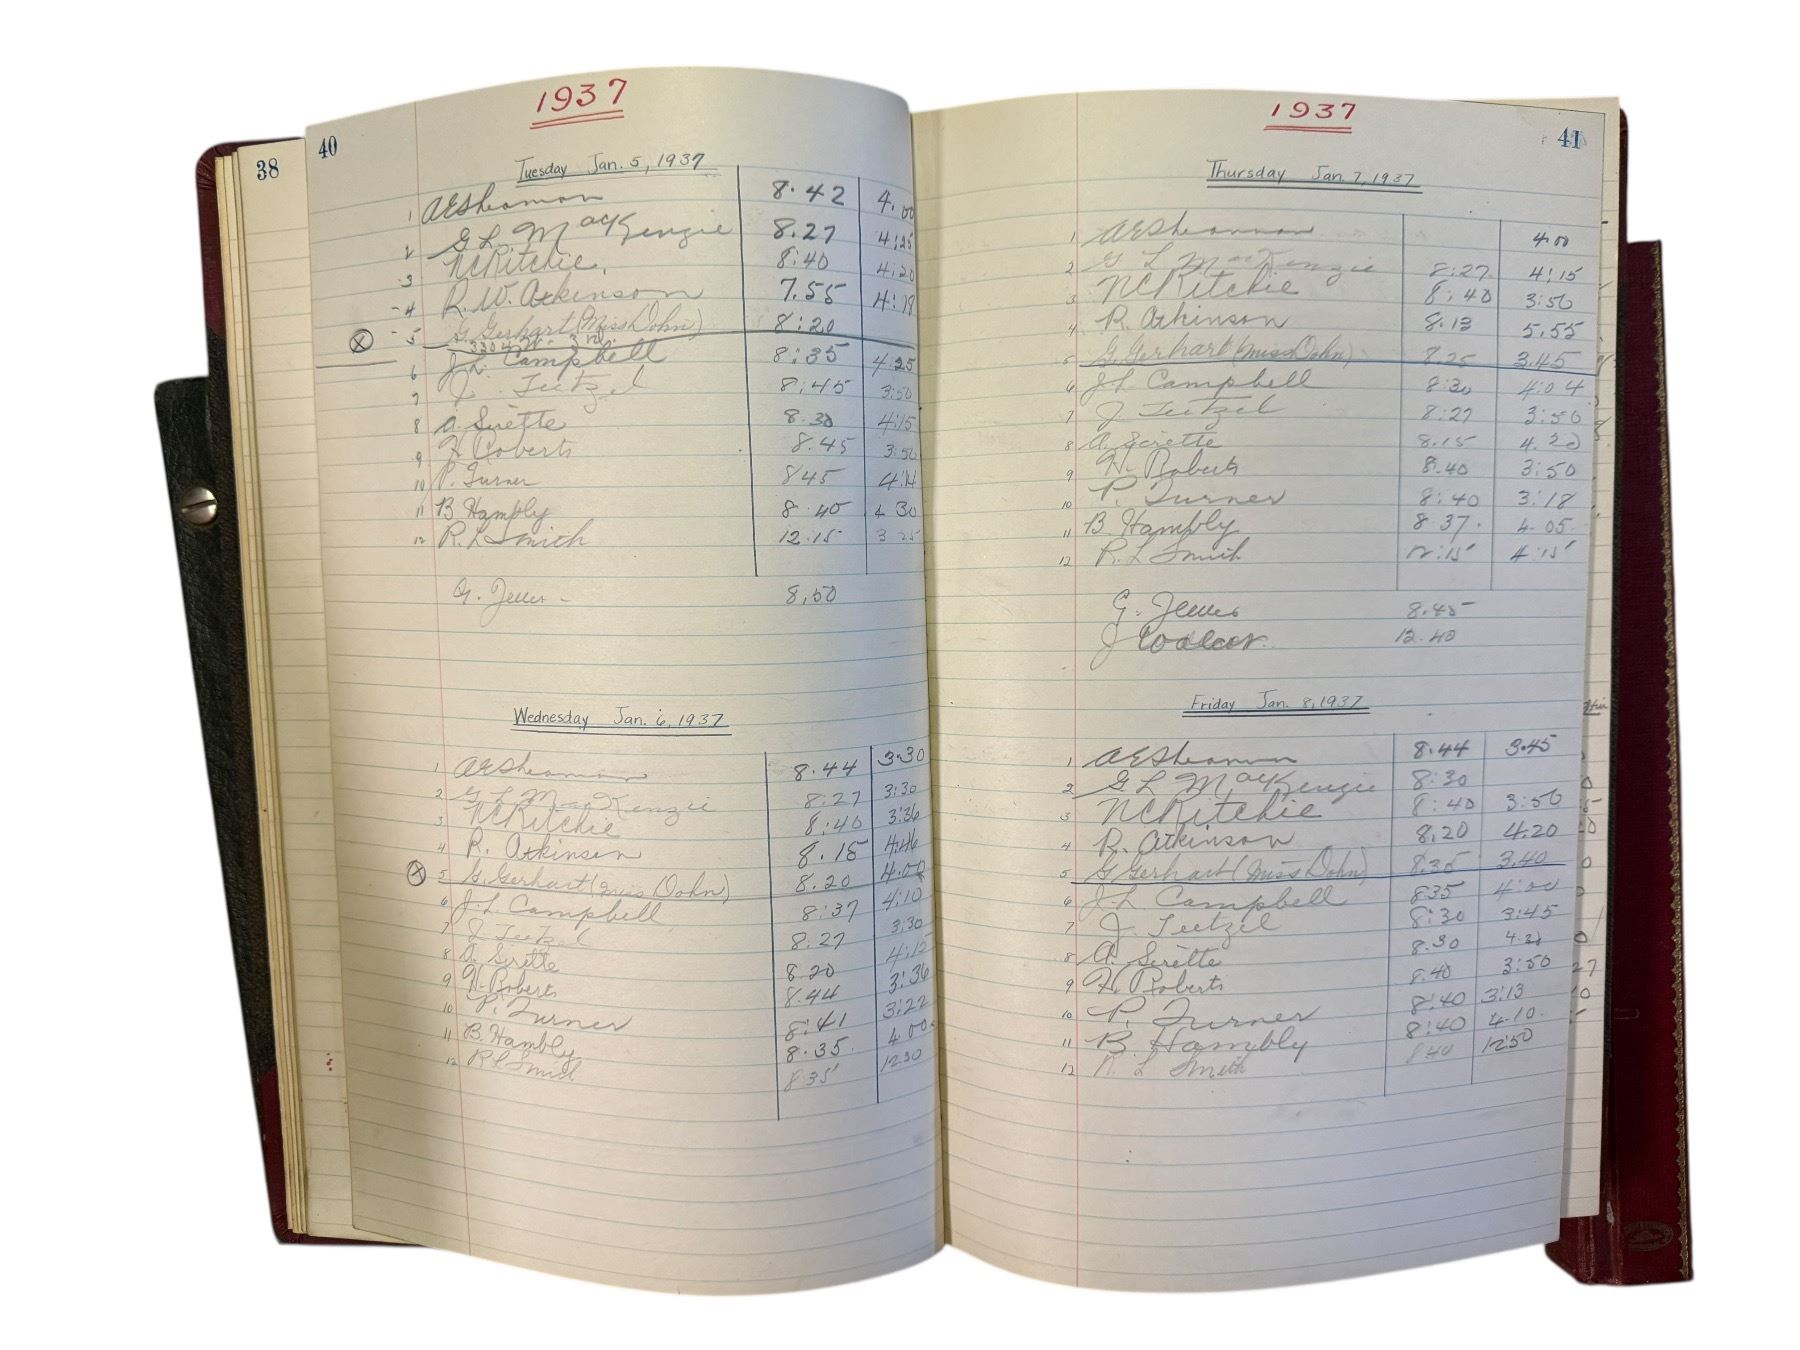 38
40
1937
Tuesday Jan. 5, 1937
1 AE Shannon 8.42 4.00
2 G L MacKenzie 8.27 4:25
3 NC Ritchie. 8:40 4:20
4 R. W. Atkinson 7.55 4:19
5 G. Gerhart (Miss Dohn) 8:20
6 J.L. Campbell 8:35 4:25
7 J. Teetzel 8:45 3:50
8 A. Serette 8.30 4:15
9 H. Roberts 8.45 3:50
10 P. Turner 8 45 4:14
11 B Hambly 8.40 4 30
12 R. L Smith 12.15 3 25
G. 8.50
Wednesday Jan. 6, 1937
1 AE Shannon 8.44 3.30
2 G L MacKenzie 8:27 3:30
3 NC Ritchie 8:40 3:36
4 R. Atkinson 8.15 4:46
5 G. Gerhart (Miss Dohn) 8.20 4.00
6 J.L. Campbell 8:37 4:10
7 J Teetzel 8:27 3:30
8 A. Serette 8.20 4:12
9 H. Roberts 8.44 3:36
10 P. Turner 8:41 3:22
11 B. Hambly 8.35. 4 00
12 R L Smith 8 35 12.30
1937
41
Thursday Jan. 7, 1937
1 AE Shannon 4.00
2 G L MacKenzie 8:27 4:15
3 NC Ritchie 8:40 3:50
4 R. Atkinson 8.13 5.55
5 G. Gerhart (Miss Dohn) 8.25 3.45
6 J L Campbell 8:30 4:04
7 J Teetzel 8:27 3:50
8 A. Serette 8.15 4.20
9 H. Roberts 8.40 3:50
10 P. Turner 8:40 3:18
11 B. Hambly 8 37. 4.05
12 R. L Smith 12:15 4:15
G. 8.45
J 12.40
Friday Jan. 8, 1937
1 AE Shannon 8.44 3.45
2 G L MacKenzie 8:30
3 NC Ritchie 8:40 3:50
4 R. Atkinson 8.20 4.20
5 G Gerhart (Miss Dohn) 8.35 3.40
6 J.L Campbell 835 4:00
7 J. Teetzel 8:30 3:45
8 A. Serette 8.30
9 H. Roberts 8.40 3:50
10 P. Turner 8:40 3:13
11 B. Hambly 8:40 4.10.
12 R. L Smith 8 40 12:50